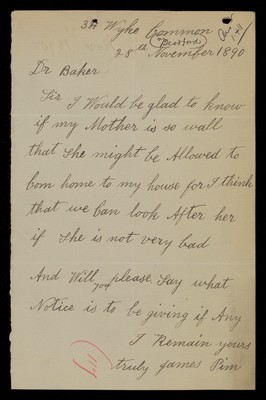 38 Wyke Common
Bradford
28th November 1890
Dr Baker
Sir I Would be glad to know
if my Mother is so wall
that She might be Allowed to
Com home to my house for I think
that we Can look After her
if She is not very bad
And Will you please Say what
Notice is to be giving if Any
I Remain yours
truly James Pim